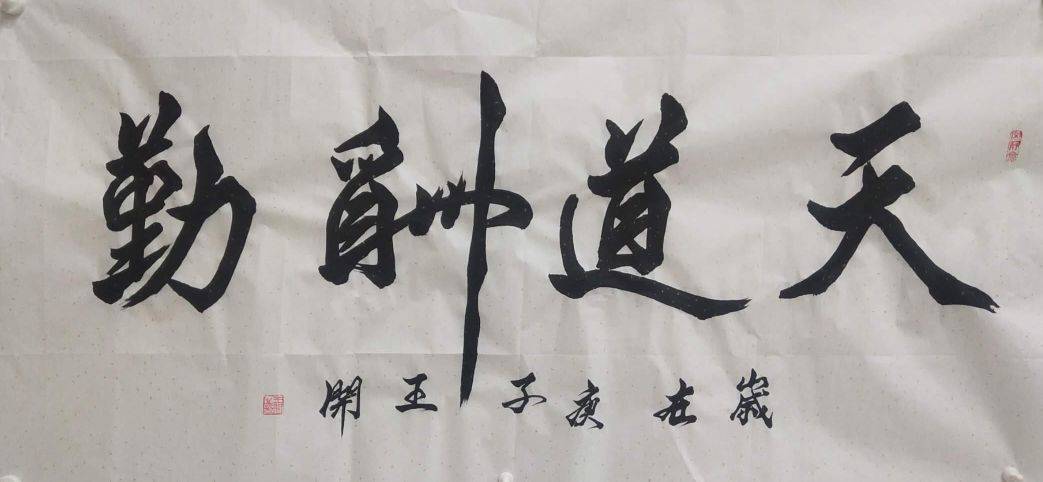 天道酬勤
歲在庚子王開